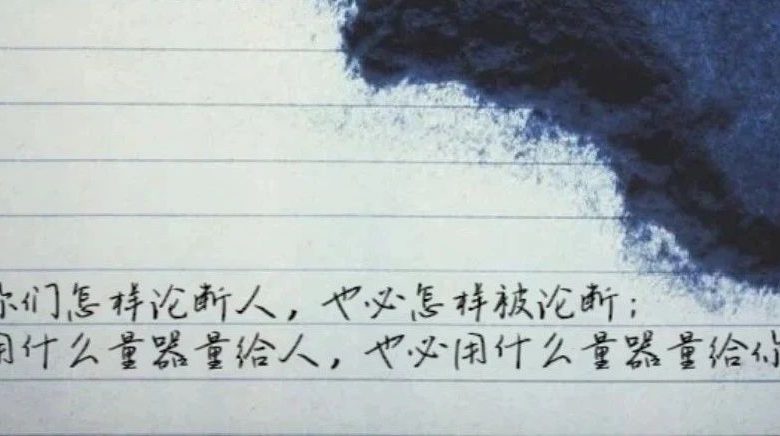 你们怎样论断人，也必怎样被论断；
用什么量器量给人，也必用什么量器量给你